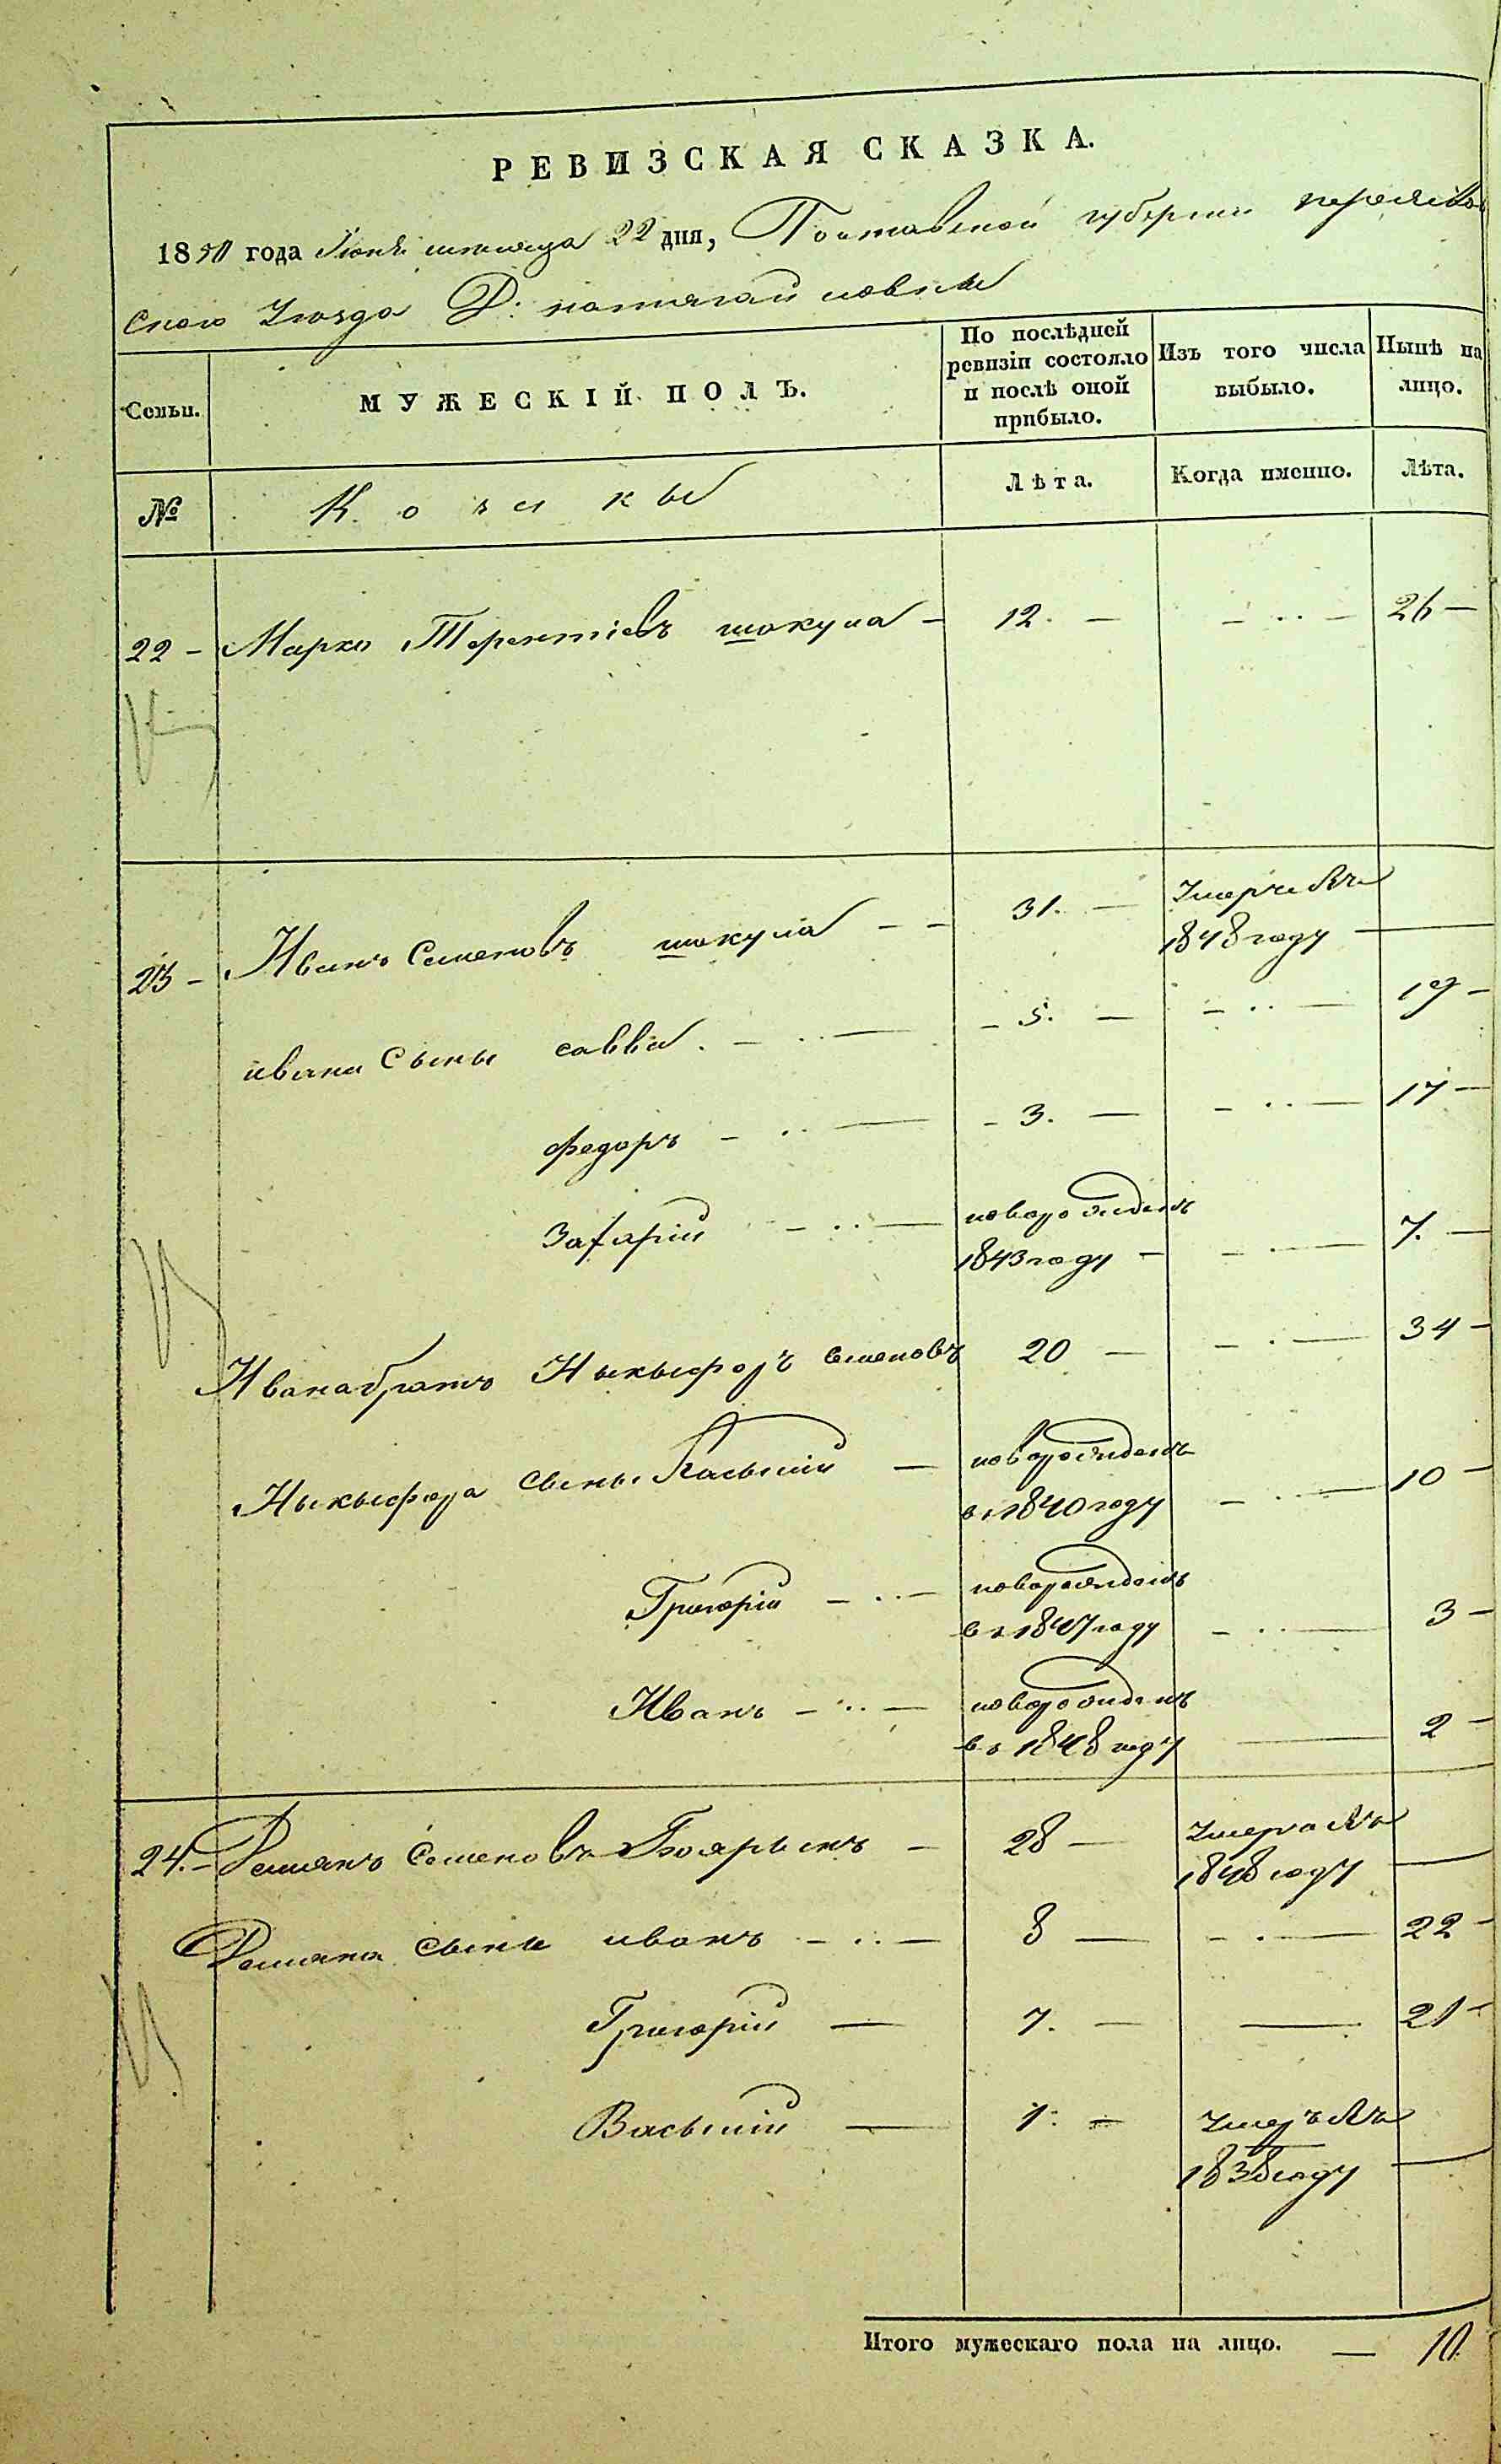 РЕВИЗСКАЯ СКАЗКА.
1850 года Июня месяца 22 дня, Полтавской губернии переяслов
ского уезда Д:
Семьи.
МУЖЕСКІЙ ПОЛЪ.
По послѣдней ревизіи состояло и послѣ оной прибыло.
Изъ того числа выбыло.
Нынѣ на лицо.
№
Лѣта.
Когда именно.
Лѣта.
22 - Марко Терентіевъ шокула - 12. - - .. - 26 -
23 - Иванъ Семеновъ шокула - - 31. - Умерче Въ
1848 году -
ивана Сыны савва . - .. - - 5. - - .. - 19 -
федоръ - .. - - 3. - - .. - 17 -
Захарій - .. - новорожденъ
1843 году - - . - 7. -
Ивана братъ Ныкыфоръ семеновъ 20 - - . - 34 -
Ныкыфора сыны Васылій - новорожденъ
въ 1840 году - . - 10 -
Григорій - .. - новорожденъ
въ 1847 году - .. - 3 -
Иванъ - .. - новорожденъ
въ 1848 году - 2 -
24. - Демянъ Семеновъ Бояръынъ - 28 - Умерь Въ
1848 году -
Демяна сыны иванъ - .. - 8 - - . - 22 -
Григорій - 7. - - 21 -
Васьлій - 1. - Умеръ Въ
1838 году -
Итого мужескаго пола на лицо. - 10.